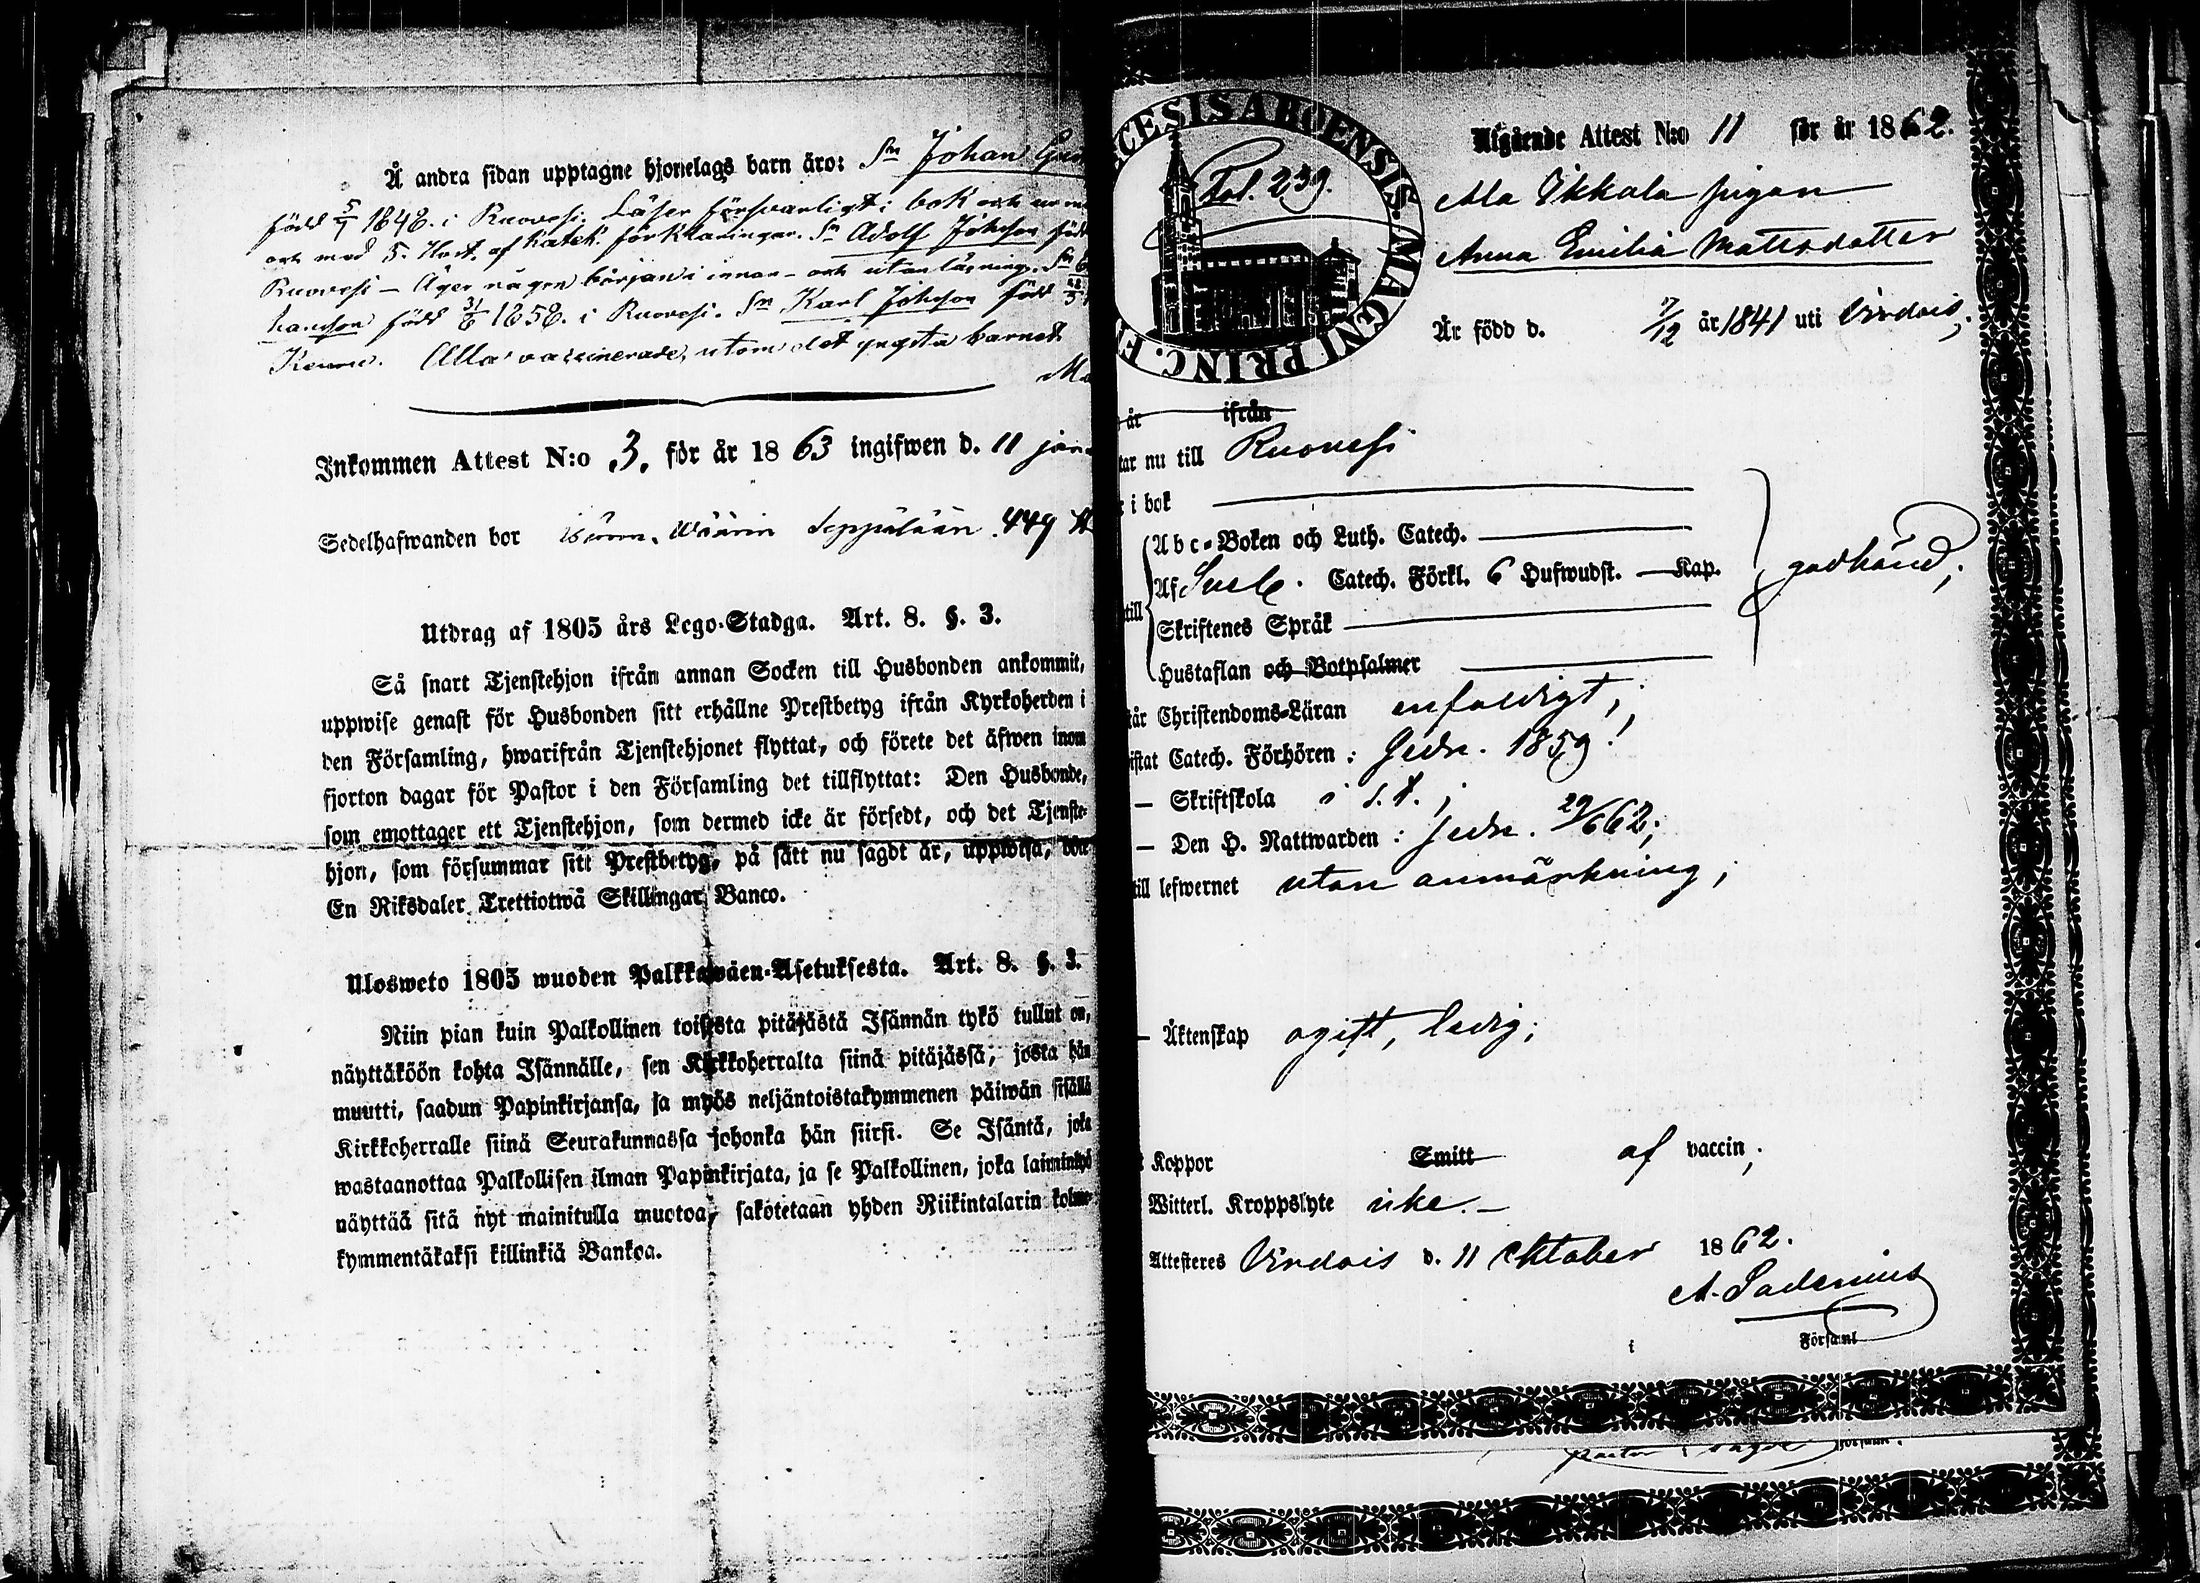 Å andra sidan upptagne hjonelags barn äro: Sn Johan
född 5/1 1848. i Ruovesi. Läser försvarligt i bok och
och med 5. Huf. af katek. förklaringar. Sn Adolf Johsson född
Ruovesi – Äger någon början i innan- och utanläsning. Sn
hansson född 31/8 1858. i Ruovesi. Sn Karl Johsson född
Alla vaccinerade, utom det yngsta barnet
Inkommen Attest N:o 3. för år 1863 ingifwen d. 11
Sedelhafwanden bor Wäärin Seppälään. 449
Utdrag af 1805 års Lego-Stadga. Art. 8. §. 3.
Så snart Tjenstehjon ifrån annan Socken till Husbonden ankommit,
uppwise genast för Husbonden sitt erhållne Prestbetyg ifrån Kyrkoherden i
den Församling, hwarifrån Tjenstehjonet flyttat, och förete det äfwen inom
fjorton dagar för Pastor i den Församling det tillflyttat: Den Husbonde,
som emottager ett Tjenstehjon, som dermed icke är försedt, och det Tjenste-
hjon, som försummar sitt Prestbetyg, på sätt nu sagdt är, uppwisa,
En Riksdaler Trettiotwå Skillingar Banco.
Ulosweto 1805 wuoden Palkkawäen-Asetuksesta. Art. 8. §. 3.
Niin pian kuin Palkollinen toisesta pitäjästä Isännän tykö tullut on,
näyttäköön kohta Isännälle, sen Kirkkoherralta siinä pitäjässä, josta hän
muutti, saadun Papinkirjansa, ja myös neljäntoistakymmenen päiwän sisällä
Kirkkoherralle siinä Seurakunnassa johonka hän siirsi. Se Isäntä, joka
wastaanottaa Palkollisen ilman Papinkirjata, ja se Palkollinen, joka laiminlyö
näyttää sitä nyt mainitulla muotoa, sakotetaan yhden Riikintalarin kolme-
kymmentäkaksi killinkiä Bankoa.
CESIS ABOENSIS MAGNI PRINC. F
Fol. 239.
Afgående Attest N:o 11 för år 1862.
Ala Ikkala pigan
Anna Emilia Mattsdotter
Är född d. 7/12 år 1841 uti Virdois;
år ifrån
tar nu till Ruovesi
i bok
Abc-Boken och Luth. Catech.
Af Sveb. Catech. Förkl. 6 Hufwudst. Kap. godkänd;
till
Skriftenes Språk
Hustaflan och Botpsalmer
Christendoms-Läran enfaldigt;
Catech. Förhören: sedn. 1859!
Skriftskola i s. t.;
Den H. Nattwarden: sedn. 29/6 62;
till lefwernet utan anmärkning;
Äktenskap ogift, ledig;
Koppor Smitt af vaccin;
Witterl. Kroppslyte icke.
Attesteres Virdois d. 11 Oktober 1862.
A. Sadenius
i Församl